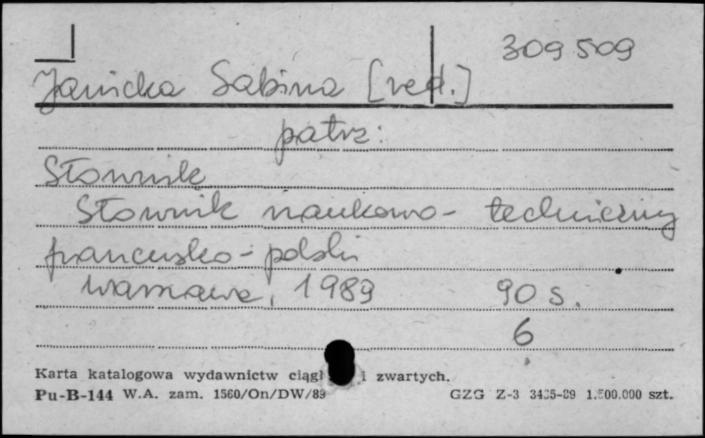 309509
Janicka Sabina [red.]
patrz:
Słownik
Słownik naukowo-techniczny
francusko-polski
Warszawa, 1989 90 s.
6
Karta katalogowa wydawnictw ciągł i zwartych.
Pu-B-144 W.A. zam. 1560/On/DW/89 GZG Z-3 3435-89 1.500.000 szt.